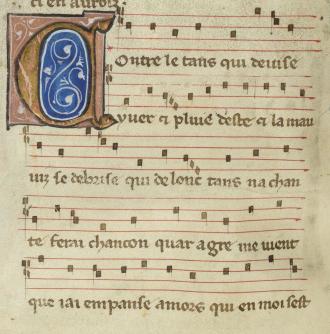 ci en aurois
Contre le tans qui deuise
yuer ⁊ pluie deste ⁊ la mau
uiz se debrise qui de lonc tans na chan
te ferai chancon quar a gre me uient
que iai empanse amors qui en moi sest